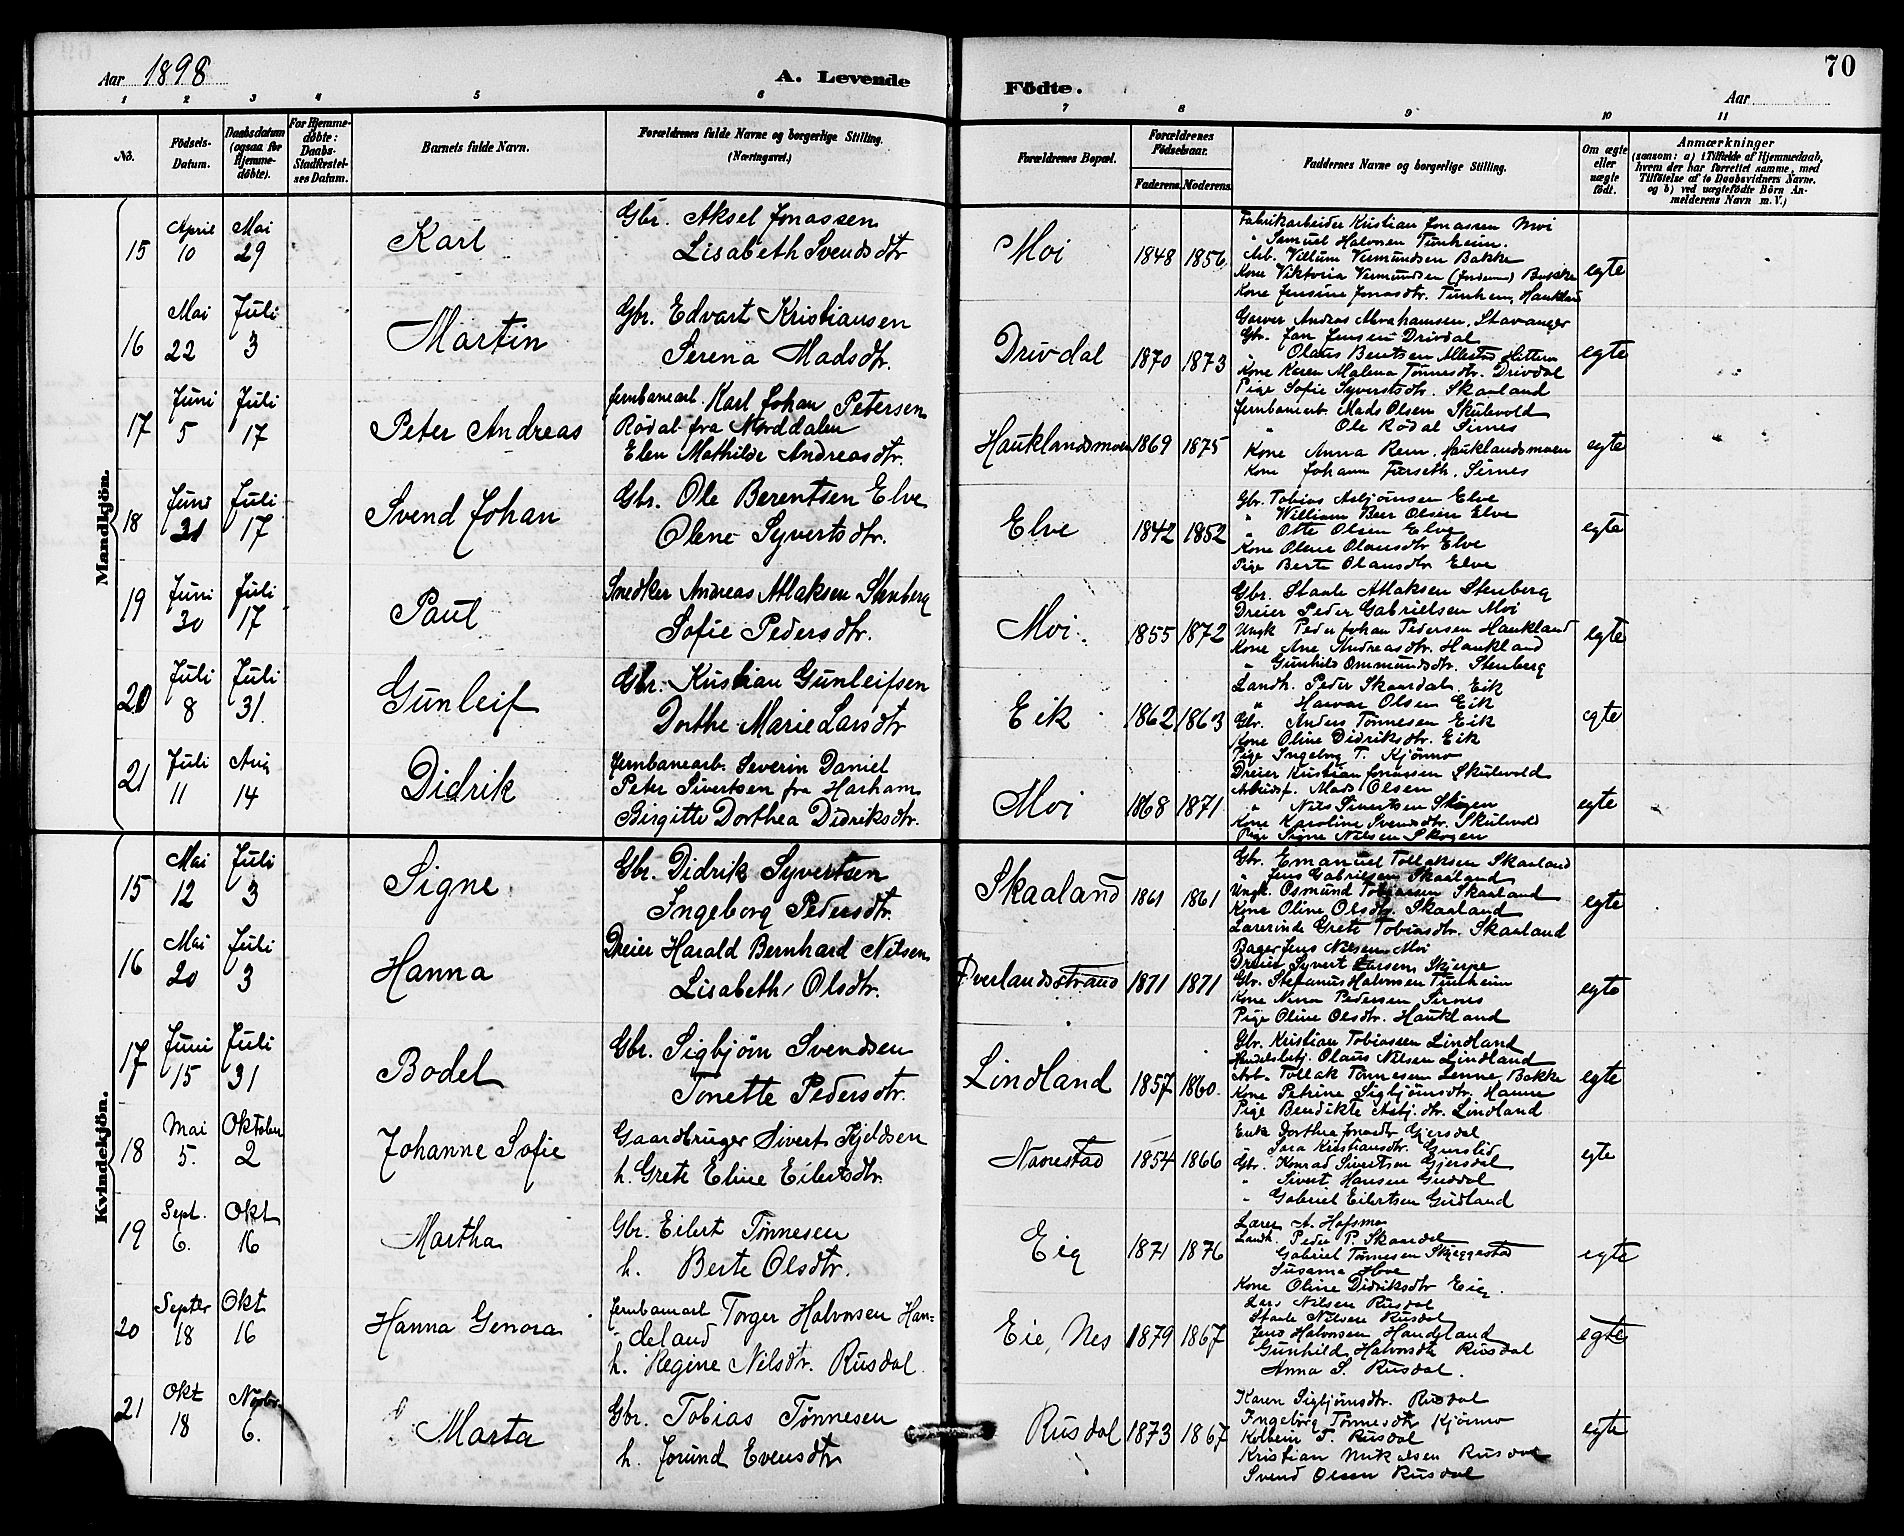 Aar 1898
A. Levende
Födte.
70
Aar
1 2 3 4 5 6 7 8 9 10 11
No.
Födsels-Datum.
Daabsdatum (ogsaa for Hjemme-döbte).
For Hjemme-döbte: Daabs-Stadfæstel-ses Datum.
Barnets fulde Navn.
Forældrenes fulde Navne og borgerlige Stilling. (Næringsvei.)
Forældrenes Bopæl.
Forældrenes Födselsaar.
Faderens. Moderens.
Faddernes Navne og borgerlige Stilling.
Om ægte eller uægte födt.
Anmærkninger
(saasom: a) i Tilfælde af Hjemmedaab, hvem der har forrettet samme, med Tilföielse af to Daabsvidners Navne, og b) ved uægtefödte Börn An-melderens Navn m. V.)
Mandkjön.
15 April 10 Mai 29 Karl
Gbr. Aksel Jonassen
Lisabeth Svendsdtr
Moi 1848 1856
Fabrikarbeider Kristian Jonassen Moi
" Samuel Halvorsen Tunheim.
Arb. Villum Vermundsen Bakke
Kone Viktoria Vermundsen Bakke
Kone Jensine Jonasdtr. Tunheim, Haukland
egte
16 Mai 22 Juli 3 Martin
Gbr. Edvart Kristiansen
Serena Madsdtr.
Drivdal 1870 1873
Garver Andras Abrahamsen, Stavanger
Gbr. Jan Jensen Drivdal
" Olaus Bentsen
Kone Karen Malena Tønnesdtr. Drivdal
Pige Sofie Syvertsdtr. Skaaland
egte
17 Juni 5 Juli 17 Peter Andreas
Jernbanearb. Karl Johan Petersen
Rødal fra Norddalen
Elen Mathilde Andreasdtr.
Hauklandsmoen 1869 1875
Jernbanearb. Mads Olsen Skulevold
" Ole Rødal Sirnes
Kone Anna Rem. Hauklandsmoen
Kone Johann Furseth. Sirnes
egte
18 Juni 31 Juli 17 Svend Johan
Gbr. Ole Berentsen Elve
Olene Syvertsdtr.
Elve 1842 1852
Gbr. Tobias Asbjørnsen Elve
" William Beer Olsen Elve
" Otte Olsen Elve
Kone Olene Olausdtr Elve
Pige Bert Olausdtr Elve
egte
19 Juni 30 Juli 17 Paul
Snedker Andreas Atlaksen Stenberg
Sofie Pedersdtr.
Moi. 1855 1872
Gbr. Staale Atlaksen Stenberg
Dreier Peder Gabrielsen Moi
Ungk Peder Johan Pedersen Haukland
Kone Ane Andreasdtr. Haukland
" Gunhild Ommundsdtr. Stenberg
egte
20 Juli 8 Juli 31. Gunleif
Gbr. Kristian Gunleifsen
Dorthe Marie Larsdtr
Eik 1862 1863
Landh. Peder Skaardal Eik
" Havar Olsen Eik
Gbr. Anders Tønnesen Eik
Kone Oline Didriksdtr. Eik
Pige Ingeborg T. Kjørmo
egte
21 Juli 11 Aug 14 Didrik
Jernbanearb. Severin Daniel
Peter Sivertsen fra Harham
Birgitte Dorthea Didriksdtr.
Moi 1868 1871
Dreier Kristian Jonassen Skulevold
Arbeidsf. Mads Olsen
" Nils Sivertsen Skogen
Kone Karoline Svendsdtr. Skulevold
Pige Signe Nilsen Skogen
egte
Kvindekjön.
15 Mai 12 Juli 3 Signe
Gbr. Didrik Syvertsen
Ingeborg Pedersdtr.
Skaaland 1861 1861
Gbr. Emanuel Tollaksen Skaaland
" Jens Gabrielsen Skaaland
Ungk. Osmund Tobiassen Skaaland
Kone Oline Olsdtr. Skaaland
Lærerinde Grete Tobiasdtr. Skaaland
egte
16 Mai 20 Juli 3 Hanna
Dreier Harald Bernhard Nilsen
Lisabeth Olsdtr.
Øverlandsstrand 1871 1871
Bager Jens Nilsen Moi
Dreier Syvert Larsen Skjerpe
Gbr. Stefanus Halvorsen Tunheim
Kone Nina Pedersen Sirnes
Pige Oline Olsdtr. Haukland
egte
17 Juni 15 Juli 31 Bodel
Gbr. Sigbjørn Svendsen
Tonette Pedersdtr.
Lindland 1857 1860.
Gbr. Kristian Tobiassen Lindland
Handelsbetj. Olaus Nilsen Lindland
Arb. Tollak Tønnesen Bakke
Kone Petrine Sigbjørnsdtr. Hamre
Pige Bendikte Asbj.dtr. Lindland
egte
18 Mai 5. Oktober 2 Johanne Sofie
Gaardbruger Sivert Kjeldsen
h. Grete Eline Eilertsdtr.
Navrestad 1854 1866
Enk Dorthea Jonasdtr Gjersdal
" Sara Kristiansdtr.
Gbr. Konrad Sivertsen Gjersdal
" Sivert Hansen
" Gabriel Eilertsen Gudland
egte
19 Sept. 6. Okt 16 Martha
Gbr. Eilert Tønnesen
h. Berte Olsdtr.
Eig 1871 1876
Lærer A. Hofsmo
Landh. Peder P. Skaardal
Gabriel Tønnesen Skjeggestad
Susanna Hove
Kone Oline Didriksdtr Eig
egte
20 Septer 18 Okt 16 Hanna Genora
Jernbanearb Torger Halvorsen Han-
deland
h. Regine Nilsdtr. Rusdal.
Eie, Nes 1879 1867
Lars Nilsen Rusdal
Staale Nilsen Rusdal
Jens Halvorsen Handeland
Gunhild Halvorsdtr Rusdal
Anna S. Rusdal.
egte
21 Okt 18 Novbr. 6. Marta
Gbr. Tobias Tønnesen
h. Jorund Evensdtr
Rusdal 1873 1867
Karen Sigbjørnsdtr. Rusdal
Ingeborg Tønnesdtr Kjørmo
Kolbein T. Rusdal
Kristian Mikalsen Rusdal
Svend Olsen Rusdal
egte